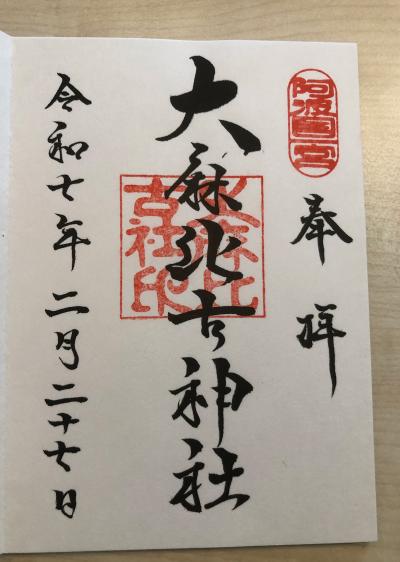 阿波国一宮
奉拝
大麻比古神社
大麻比古社印
令和七年二月二十七日